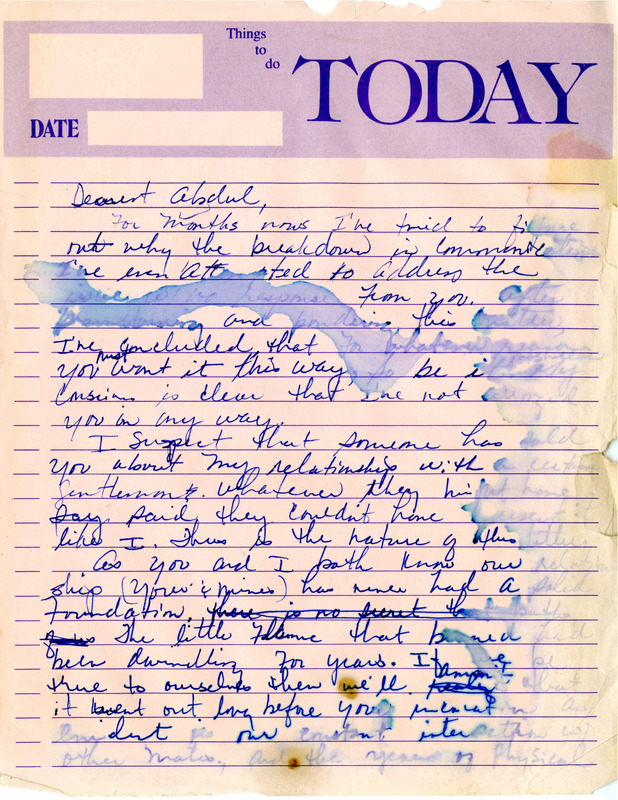 Things
to
do
TODAY
DATE
Dearest Absdul,
For months now I've tried to
out why the breakdown in
I've even to address the
response From you. after
and pondering this
I've concluded that to whatever
you must want it this way to be it
conscious is clear that I've not
you in any way.
I Suspect that someone has told
you about my relationship with a certain
Gentleman. Whatever they
Say said, they couldn't have
like I. Thus is the nature of this
As you and I both know our relation
ship (yours & mines) has never had a solid
Foundation, there is no secret
The little Flame that burned had
been dwindling For years. If be
true to ourselves then we'll about
it went out long before your
our constant interaction
other mates, and the years of Physical